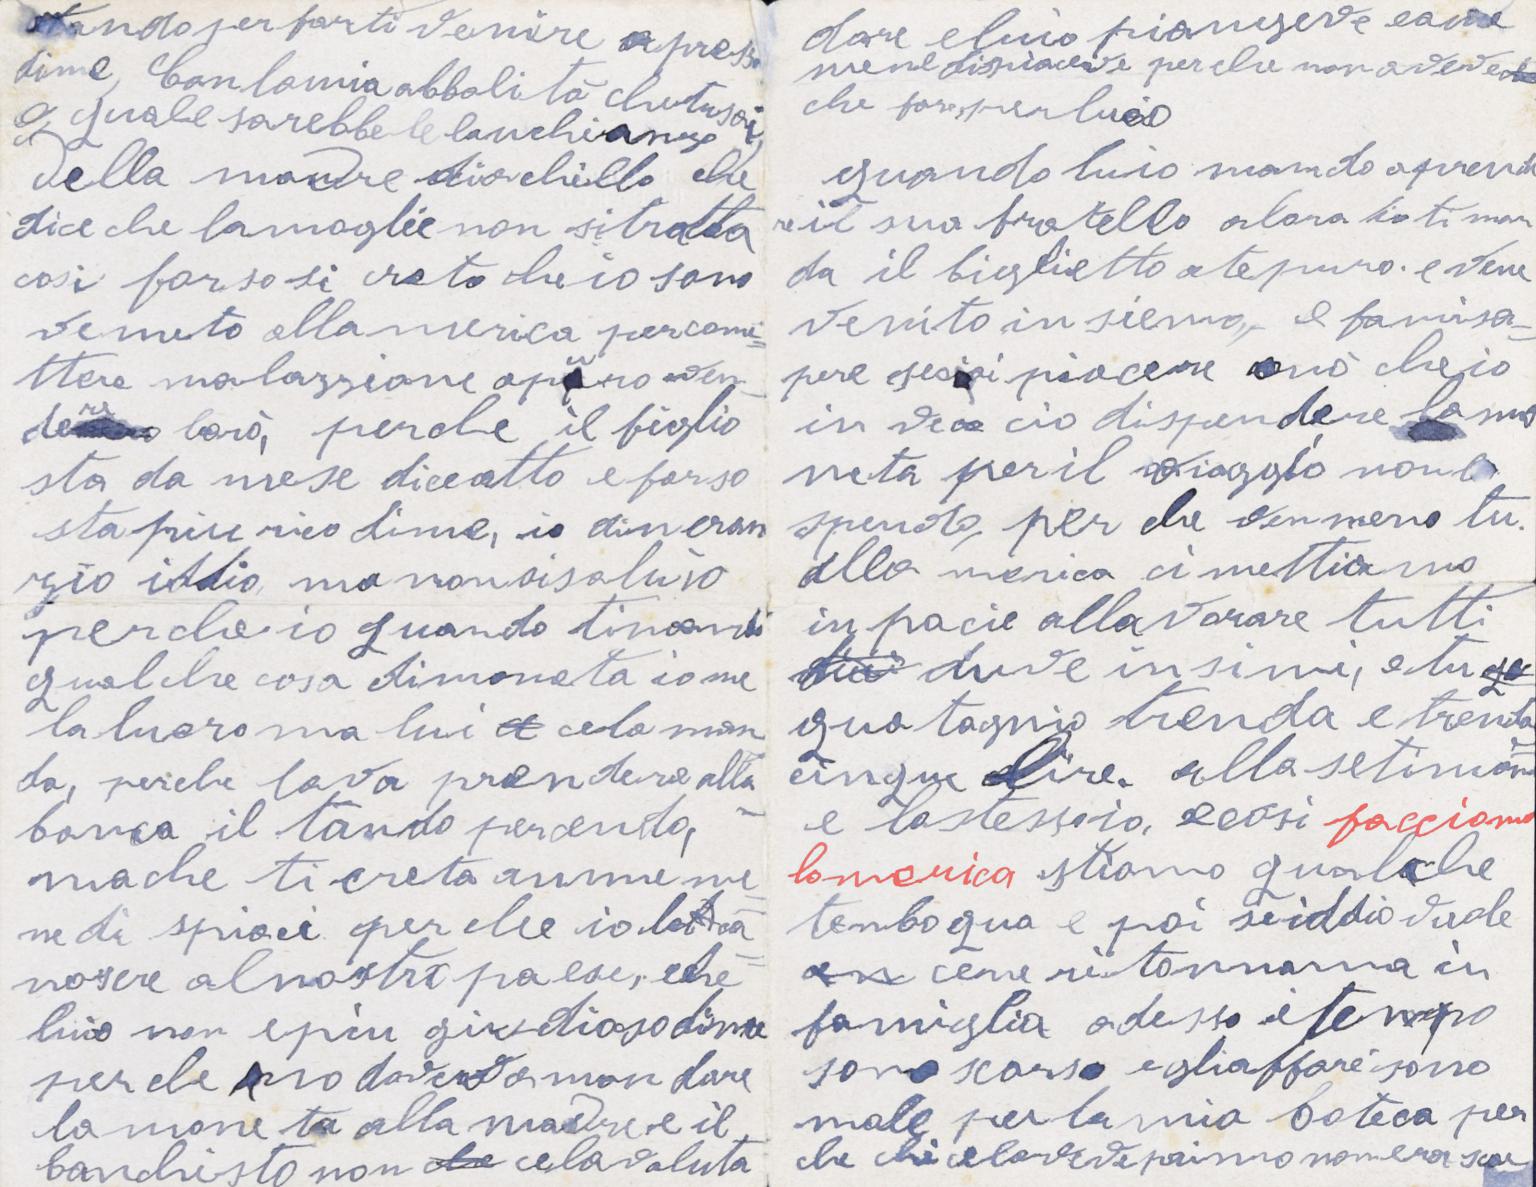 stando per farti venire apress
dime, Con lamia abbalità che tu sai,
e quale sarebbe le lanchianze
della madre diachillo che
dice che lamoglie non sitratta
cosi forso si creto che io sono
venuto alla merica percomi=
ttere malazzione opuro ven
dere loro, perche il figlio
sta da mese diceotto e forso
sta piu rico dime, io dincran
zio iddio, ma non sisaluvo
perche io quando timando
qualche cosa dimoneta io me
la lucro ma lui ce la man
da, perche lava prendere alla
banca il tando percendo,
ma che ti creta amme me
ne di spiaci per che io
nosere al nostro paese, che
luio non e piu giudiaso dime
perche doveva mandare
la mone ta alla madre e il
banchisto non cela voluta
dare eluio piangeve eame
mene dispiaceve perche non aveve
che fare, per luio
quando luio mando aprend
re il sua fratello alara io ti man
da il biglietto atepuro. e vene
venito in siemo, e famisa=
pere sesai piacere onò che io
in vece cio dispendere lamo
neta per il viaggio non la
spendo, per che venmeno tu.
alla merica ci mettiamo
in pacie allavorare tutti
duve insimi, e tu
qua tagnio trenda e trenta
cinque lire. alla setimana
e lastessoio, ecosi facciamo
lamerica stiamo qualche
tenbo qua e poi seiddio vuole
cene ritonnama in
famiglia adesso i tempo
sono scarso egliaffari sono
male per la mia boteca per
che chi celaveve primo nonera scar